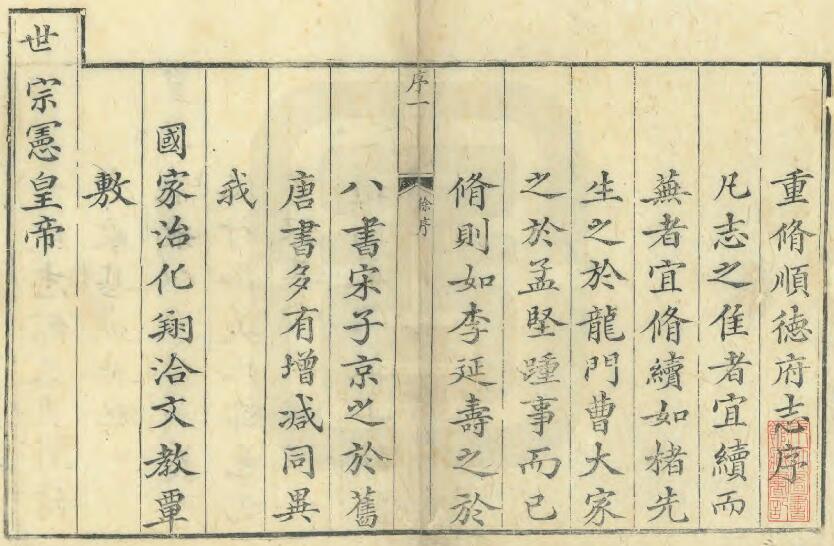 重脩順徳府志序
凡志之佳者宜續而
蕪者宜脩續如楮先
生之於龍門曹大家
之於孟堅踵事而已
脩則如李延壽之於
序一
徐序
八書宋子京之於舊
唐書多有增减同異
我
國家治化翔洽文教覃
敷
世宗憲皇帝